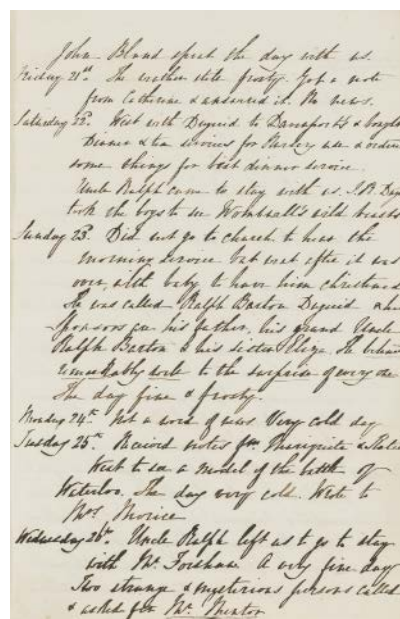 John Bland spent the day with us.
Friday 21st. The weather still frosty. Got a note
from Catherine & answered it. No news.
Saturday 22d. Went with Duguid to Davenport's & bought
Dinner & tea services for Nursery use & ordered
some things for best dinner service.
Uncle Ralph came to stay with us. J.B. Dug
took the boys to see Wombwell's wild beasts
Sunday 23d. Did not go to church to hear the
morning service but went after it was
over, with baby to have him christened
He was called Ralph Barton Duguid & his
Sponsors are his father, his grand Uncle
Ralph Barton & his sister Eliza. He behaved
remarkably well to the surprise of every one
The day fine & frosty.
Monday 24th. Not a word of news. Very cold day
Tuesday 25th. Received notes from &
Went to see a model of the battle of
Waterloo. The day very cold. Wrote to
Mrs Morice
Wednesday 26th. Uncle Ralph left us to go to stay
with Mr. Forshaw. A very fine day
Two strange & mysterious persons called
& asked for Mr. Mentor